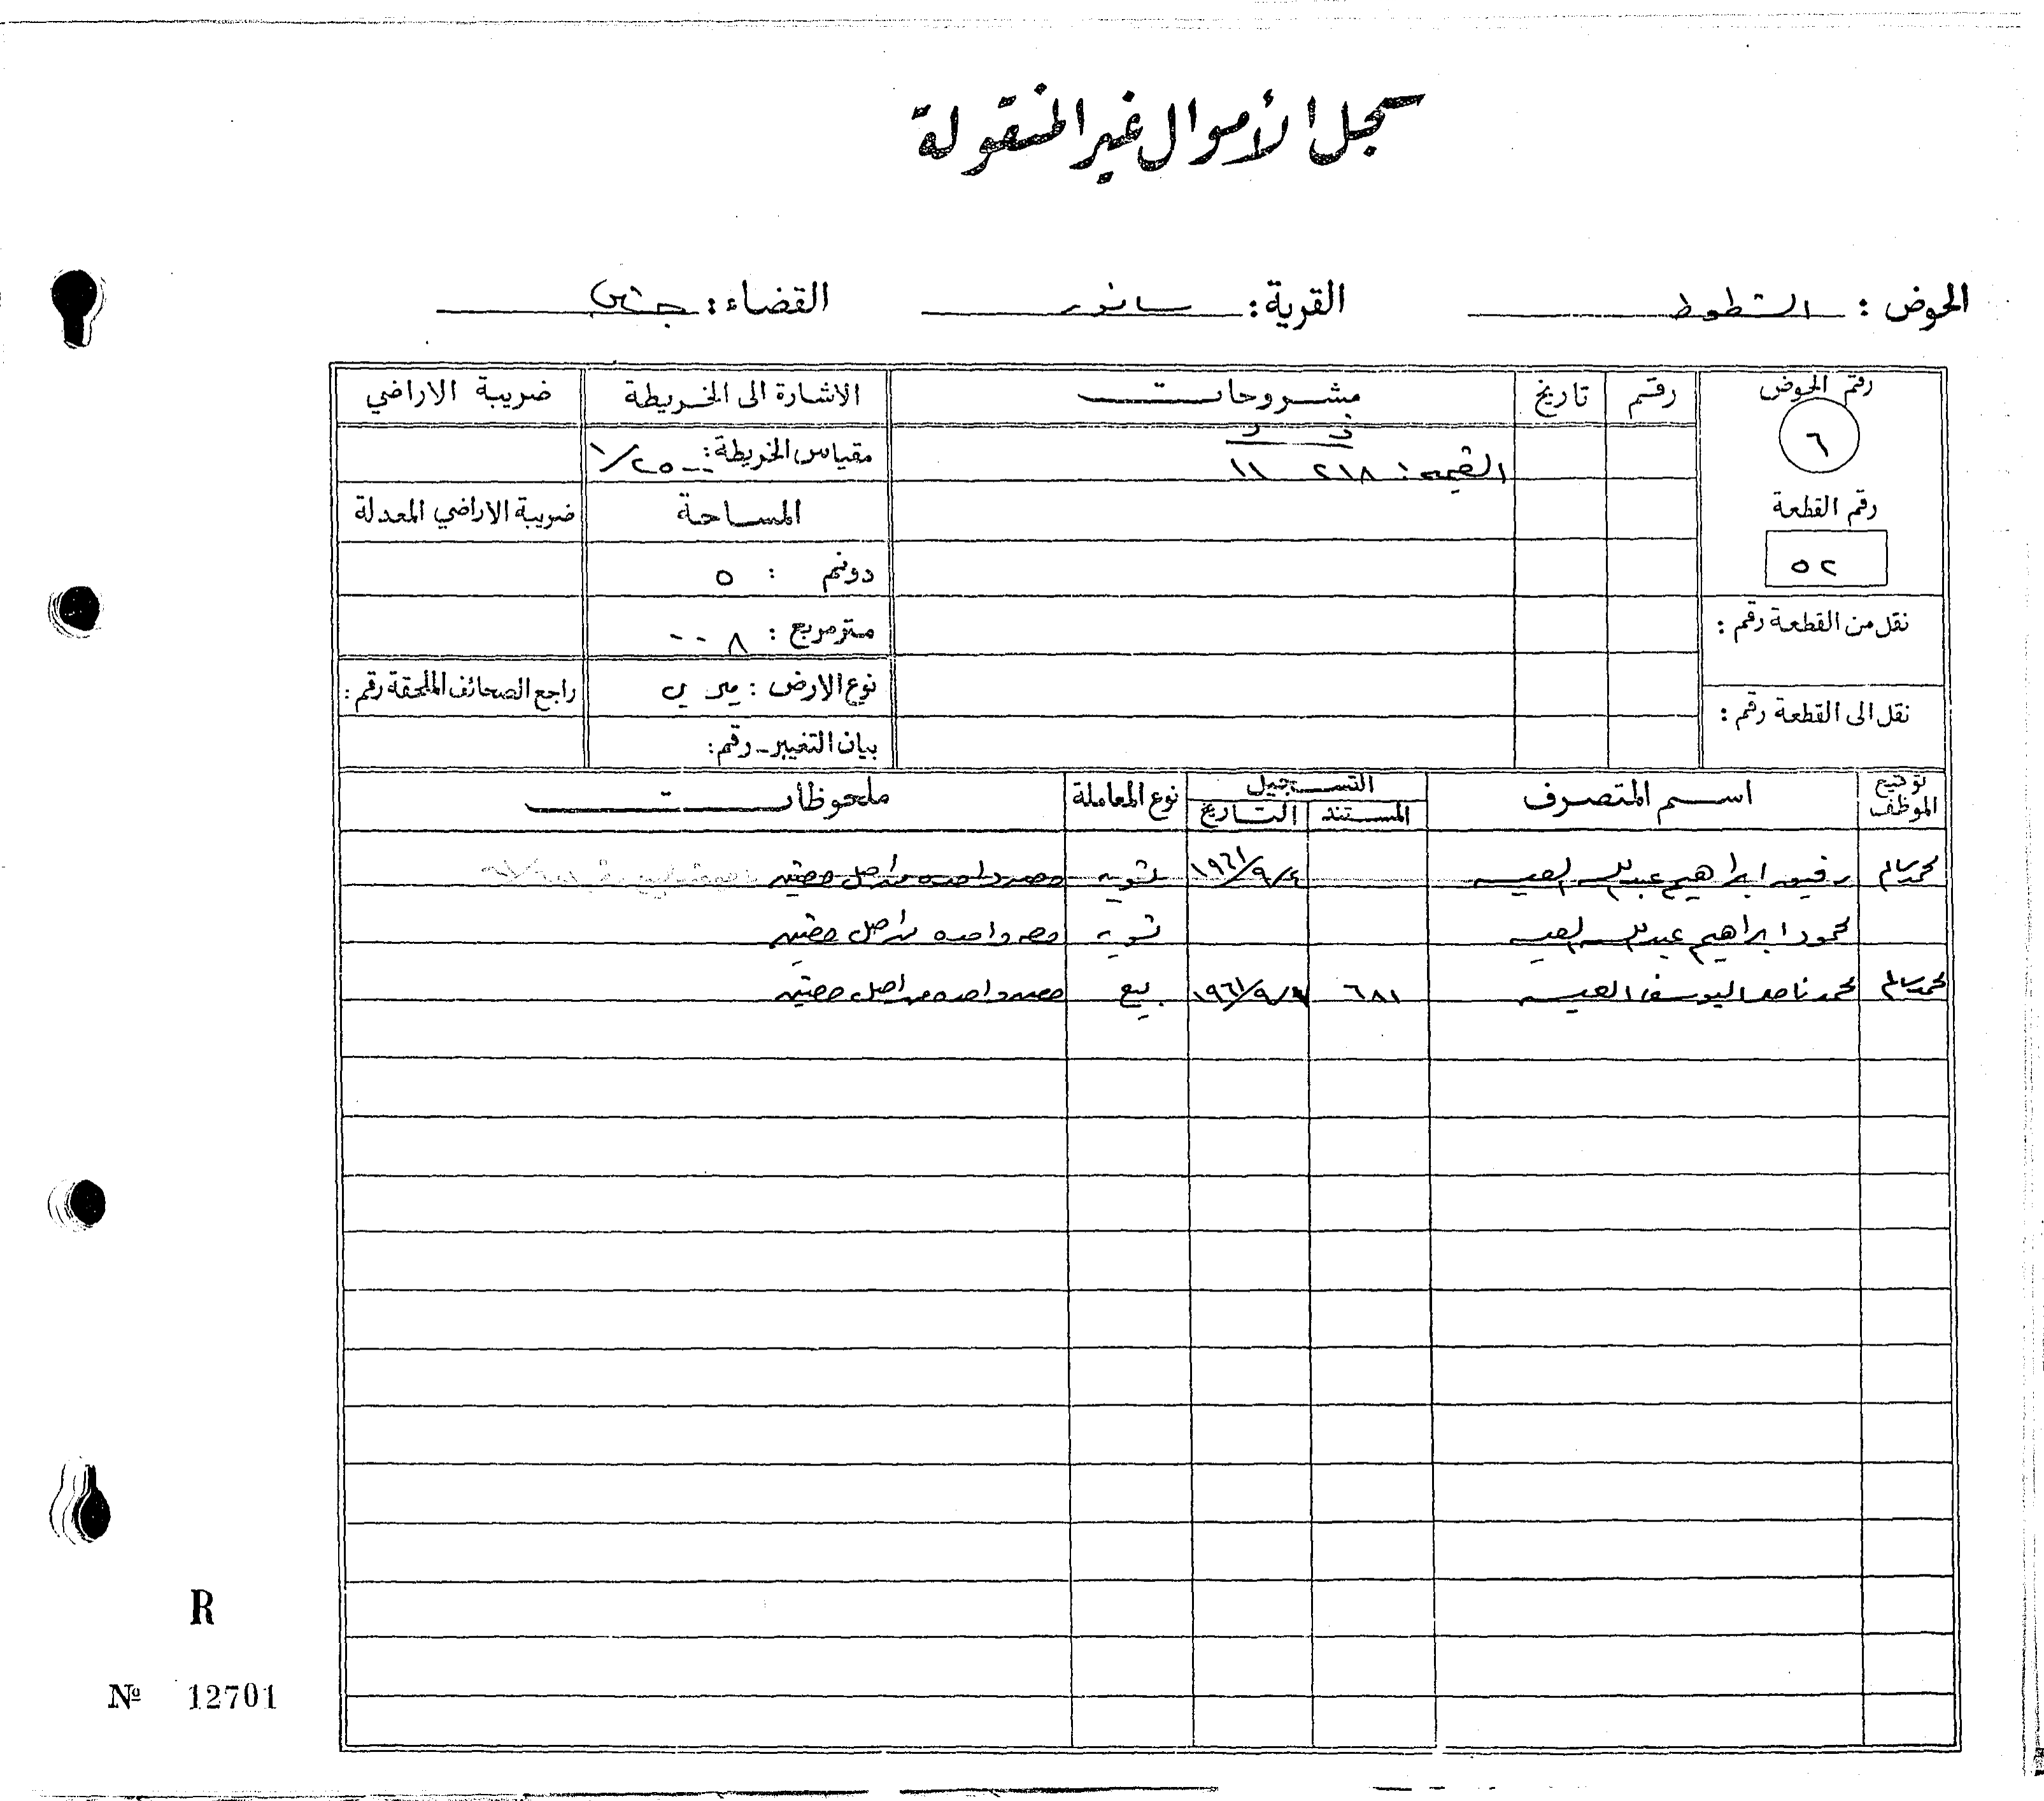 سجل الأموال غير المنقولة
الحوض : الشطوط القرية : سانور القضاء : جنين
رقم الحوض رقم تاريخ مشروحات الاشارة الى الخريطة ضريبة الاراضي
٦
ف د
القيمة : ٢١٨ ١١
مقياس الخريطة : ١/٢٥٠٠
رقم القطعة
المساحة ضريبة الاراضي المعدلة
٥٢
دونم : ٥
نقل من القطعة رقم :
متر مربع : ٨٠٠
نوع الارض : ميري راجع الصحائف الملحقة رقم :
نقل الى القطعة رقم :
بيان التغيير - رقم :
توقيع الموظف اسم المتصرف التسجيل نوع المعاملة ملحوظات
المستند التاريخ
محمد سالم رفيق ابراهيم عبدالله العيسه ١٩٦١/٩/٤ تسويه حصه واحده من اصل حصتين
محمود ابراهيم عبدالله العيسه تسويه حصه واحده من اصل حصتين
محمد سالم محمد ناصر اليوسف العيسه ٦٨١ بيع حصه واحده من اصل حصتين
R
Nº 12701